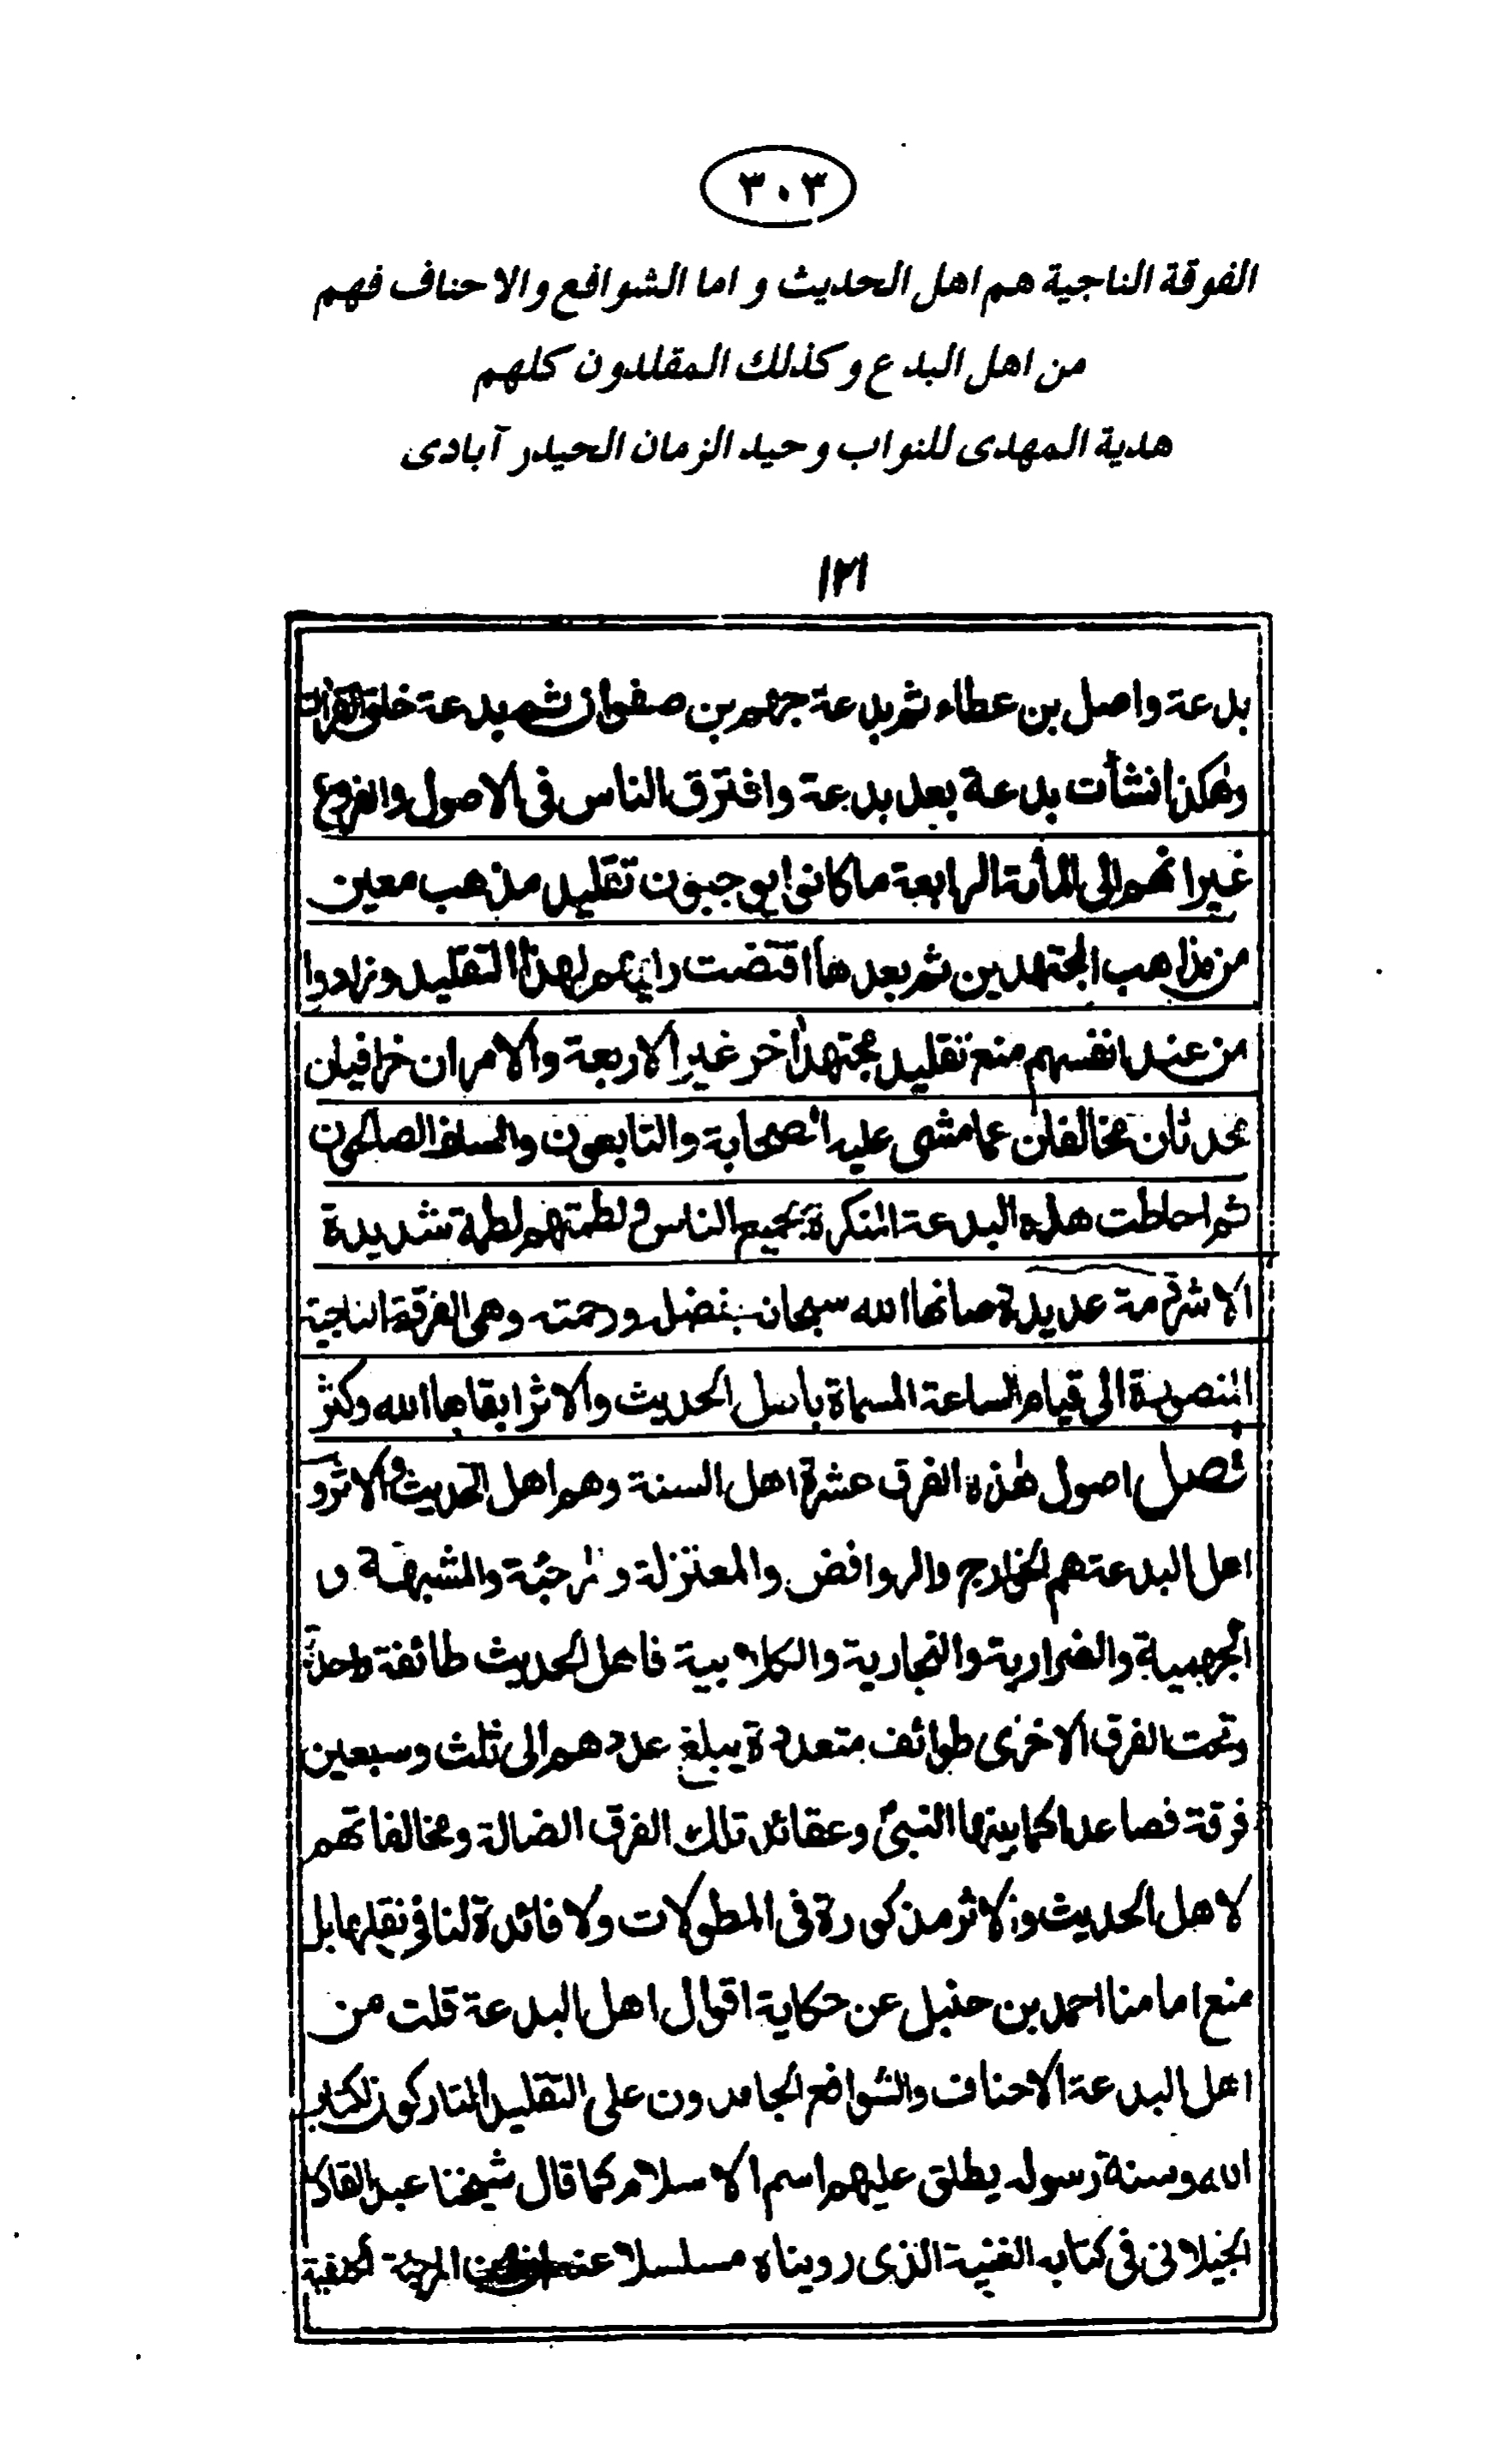 ٣٠٣
الفوقة الناجية هم اهل الحديث و اما الشوافع والاحناف فهم
من اهل البدع و كذلك المقلدون كلهم
هدية المهدى للنواب وحيد الزمان الحيدر آبادى
١٢١
بدعة واصل بن عطاء ثم بدعة جهم بن صفوان ثم بدعة خلق القرآن
وهكذا نشأت بدعة بعد بدعة وافترق الناس فى الاصول والفروع
غير انهم الى المأة الرابعة ما كانوا يوجبون تقليد مذهب معين
من مذاهب المجتهدين ثم بعدها اقتضت لهذا التقليد وزادوا
من عند انفسهم منع تقليد مجتهد آخر غير الاربعة والامران خرافيان
محدثان مخالفان عما مشى عليه الصحابة والتابعون والسلف الصالحون
ثم احاطت هذه البدعة المنكرة بجميع الناس و لطمتهم لطمة شديدة
الا شرذمة عديدة صانها الله سبحانه بفضله ورحمته وهى الفرقة الناجية
المنصورة الى قيام الساعة المسماة باهل الحديث والاثر ابقاها الله وكثر
فصل اصول هذه الفرق عشرة اهل السنة وهم اهل الحديث والاثر و
اهل البدعة هم الخوارج والروافض والمعتزلة والمرجئة والمشبهة و
الجهمية والضرارية والنجارية والكلابية فاهل الحديث طائفة واحدة
وتمت الفرق الاخرى طوائف متعددة يبلغ عددهم الى ثلث وسبعين
فرقة فصاعدا كما بينها النبى وعقائد تلك الفرق الضالة ومخالفاتهم
لاهل الحديث والاثر مذكورة فى المطولات ولا فائدة لنا فى نقلها بل
منع امامنا احمد بن حنبل عن حكاية اقوال اهل البدعة قلت من
اهل البدعة الاحناف والشوافع الجامدون على التقليد التاركون لكتاب
الله وسنة رسوله يطلق عليهم اسم الاسلام كما قال شيخنا عبد القادر
الجيلانى فى كتابه الغنية الذى رويناه مسلسلا عنه المرجئة الحنفية